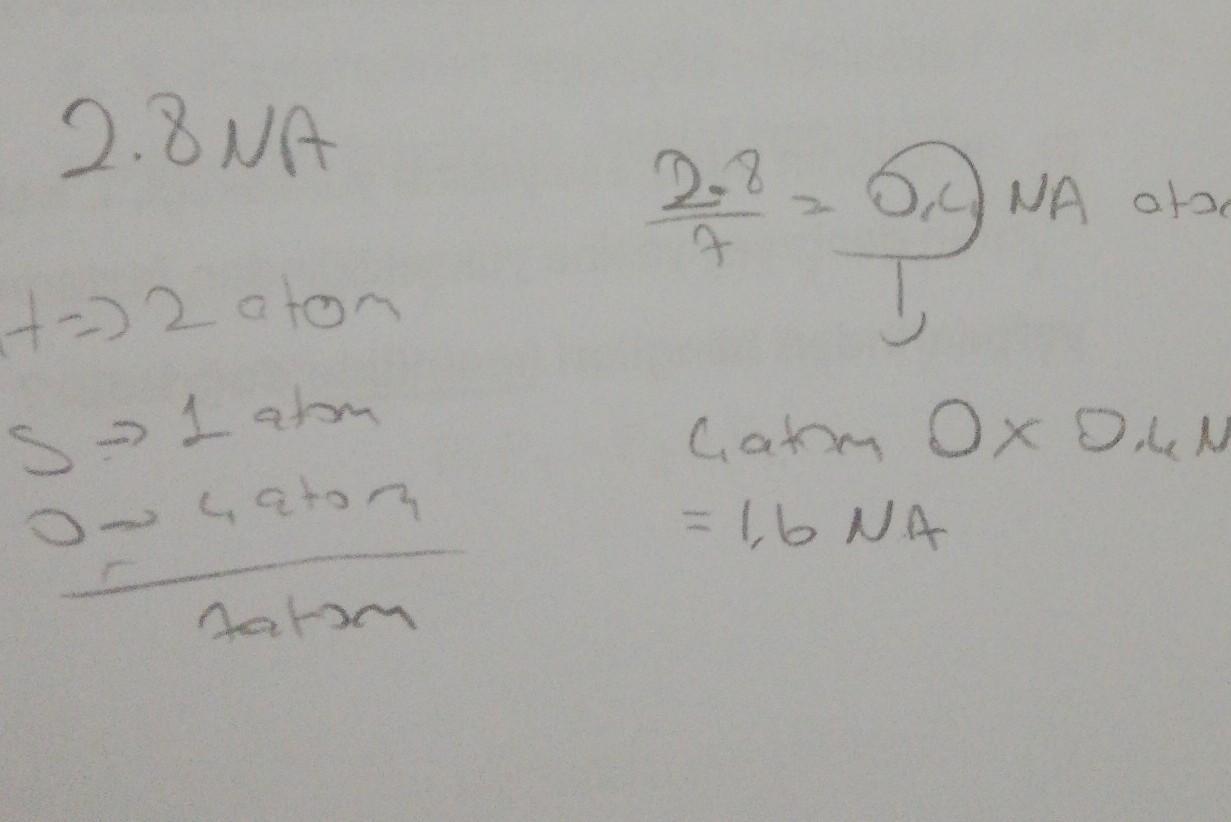 2.8 NA
H => 2 atom
S => 1 atom
O → 4 atom
7 atom
2.8 / 7 = 0,4 NA
4 atom O x 0,4 N
= 1,6 NA